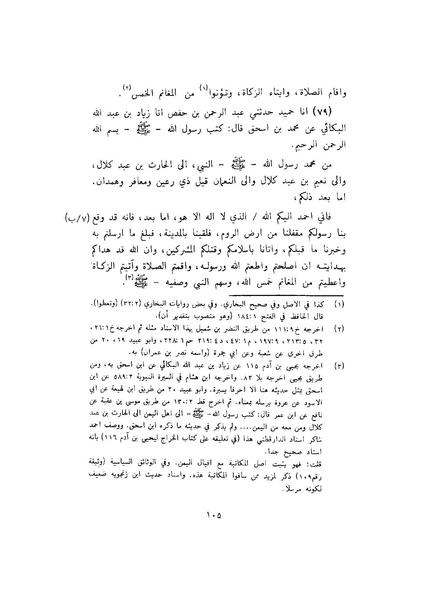 واقام الصلاة، وايتاء الزكاة، وتؤتوا(١) من المغانم الخمس(٢).
(٧٩) انا حميد حدثني عبد الرحمن بن حفص انا زياد بن عبد الله
البكائي عن محمد بن اسحق قال: كتب رسول الله - ﷺ - بسم الله
الرحمن الرحيم.
من محمد رسول الله - ﷺ - النبي، الى الحارث بن عبد كلال،
والى نعيم بن عبد كلال والى النعمان قيل ذي رعين ومعافر وهمدان.
اما بعد ذلكم،
فاني احمد اليكم الله / الذي لا اله الا هو، اما بعد، فانه قد وقع (٧/ب)
بنا رسولكم مقفلنا من ارض الروم، فلقينا بالمدينة، فبلغ ما ارسلتم به
وخبرنا ما قبلكم، واتانا باسلامكم وقتلكم المشركين، وان الله قد هداكم
بهدايته ان اصلحتم واطعتم الله ورسوله، واقمتم الصلاة وآتيتم الزكاة
واعطيتم من المغانم خمس الله، وسهم النبي وصفيه - ﷺ(٣).
(١) كذا في الاصل وفي صحيح البخاري. وفي بعض روايات البخاري (٣٢:٢) (وتعطوا).
قال الحافظ في الفتح ١٨٤:١ (وهو منصوب بتقدير أن).
(٢) اخرجه خ ١١١:٩ من طريق النضر بن شميل بهذا الاسناد مثله ثم اخرجه خ ٢١:١،
٣٢، ٢١٣:٥، ١٩٧:٩، م ٤٧:١، د ٢١٩:٤، حم ٢٢٨:١، وابو عبيد ١٩، ٢٠ من
طرق اخرى عن شعبة وعن ابي جمرة (واسمه نصر بن عمران) به.
(٣) اخرجه يحيى بن آدم ١١٥ عن زياد بن عبد الله البكائي عن ابن اسحق به، ومن
طريق يحيى اخرجه بلا ٨٣. واخرجه ابن هشام في السيرة النبوية ٥٨٩:٢ عن ابن
اسحق بمثل حديثه هنا الا احرفا يسيرة. وابو عبيد ٢٠ من طريق ابن لهيعة عن ابي
الاسود عن عروة يرسله بمعناه. ثم اخرج قط ١٣٠:٢ من طريق موسى بن عقبة عن
نافع عن ابن عمر قال: كتب رسول الله - ﷺ - الى اهل اليمن الى الحارث بن عبد
كلال ومن معه من اليمن.... ولم يذكر في حديثه ما ذكره ابن اسحق. ووصف احمد
شاكر اسناد الدارقطني هذا (في تعليقه على كتاب الخراج ليحيى بن آدم ١١٦) بانه
اسناد صحيح جدا.
قلت: فهو يثبت اصل المكاتبة مع اقيال اليمن. وفي الوثائق السياسية (وثيقة
رقم ١٠٩) ذكر لمزيد ممن ساقوا المكاتبة هذه. واسناد حديث ابن زنجويه ضعيف
لكونه مرسلا.
١٠٥